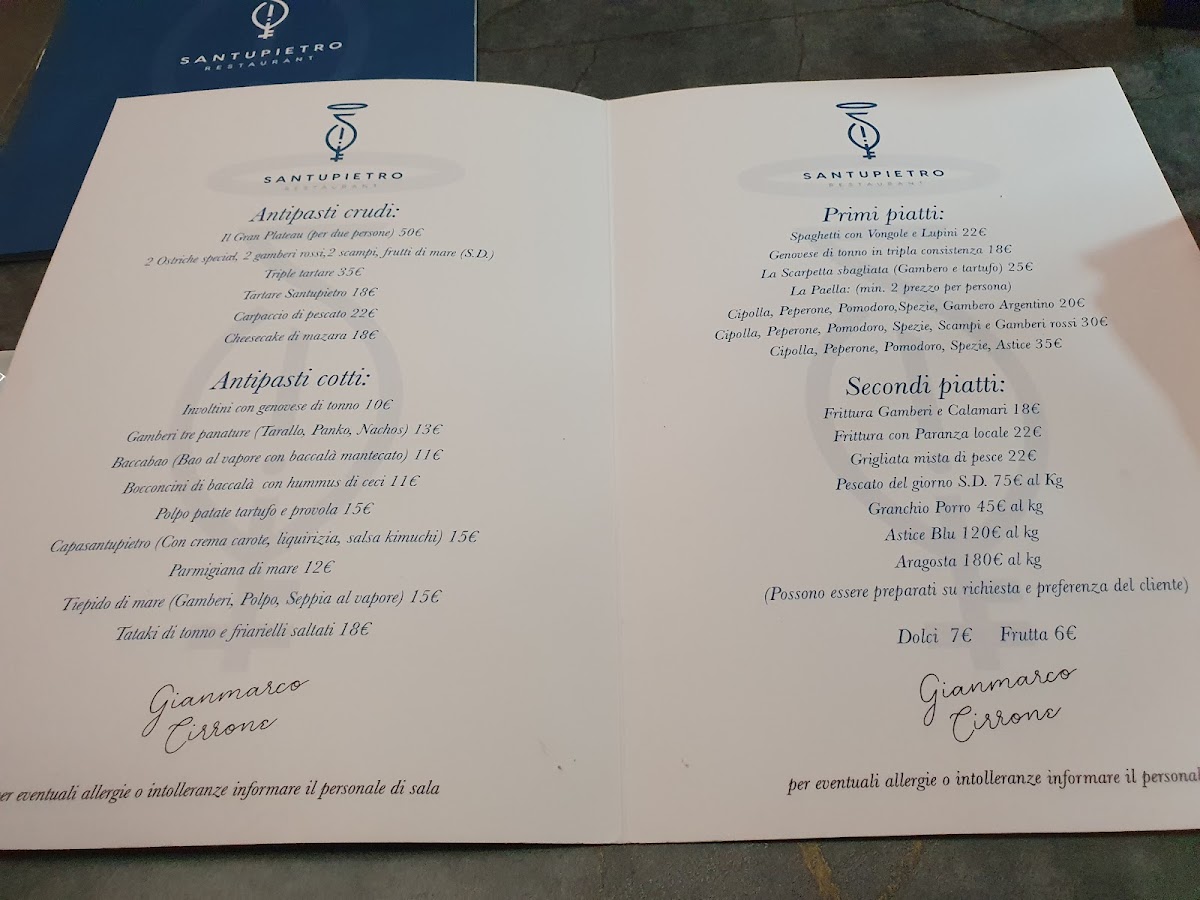 SANTUPIETRO
RESTAURANT
SANTUPIETRO
RESTAURANT
Antipasti crudi:
Il Gran Plateau (per due persone) 50€
2 Ostriche special, 2 gamberi rossi, 2 scampi, frutti di mare (S.D.)
Triple tartare 35€
Tartare Santupietro 18€
Carpaccio di pescato 22€
Cheesecake di mazara 18€
Antipasti cotti:
Involtini con genovese di tonno 10€
Gamberi tre panature (Tarallo, Panko, Nachos) 13€
Baccabao (Bao al vapore con baccalà mantecato) 11€
Bocconcini di baccalà con hummus di ceci 11€
Polpo patate tartufo e provola 15€
Capasantupietro (Con crema carote, liquirizia, salsa kimuchi) 15€
Parmigiana di mare 12€
Tiepido di mare (Gamberi, Polpo, Seppia al vapore) 15€
Tataki di tonno e friarielli saltati 18€
Gianmarco
Cirrone
per eventuali allergie o intolleranze informare il personale di sala
SANTUPIETRO
RESTAURANT
Primi piatti:
Spaghetti con Vongole e Lupini 22€
Genovese di tonno in tripla consistenza 18€
La Scarpetta sbagliata (Gambero e tartufo) 25€
La Paella: (min. 2 prezzo per persona)
Cipolla, Peperone, Pomodoro,Spezie, Gambero Argentino 20€
Cipolla, Peperone, Pomodoro, Spezie, Scampi e Gamberi rossi 30€
Cipolla, Peperone, Pomodoro, Spezie, Astice 35€
Secondi piatti:
Frittura Gamberi e Calamari 18€
Frittura con Paranza locale 22€
Grigliata mista di pesce 22€
Pescato del giorno S.D. 75€ al Kg
Granchio Porro 45€ al kg
Astice Blu 120€ al kg
Aragosta 180€ al kg
(Possono essere preparati su richiesta e preferenza del cliente)
Dolci 7€ Frutta 6€
Gianmarco
Cirrone
per eventuali allergie o intolleranze informare il personal